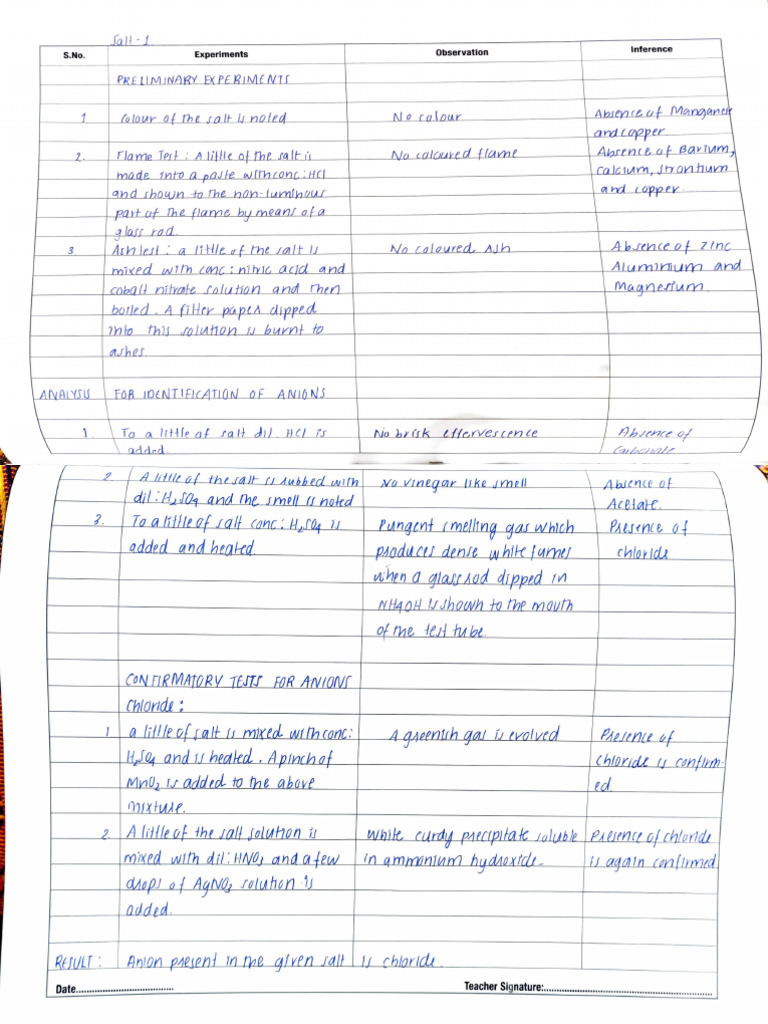 Salt - 1
S.No. Experiments Observation Inference
PRELIMINARY EXPERIMENTS
1 Colour of the salt is noted No colour Absence of Manganese
and copper
2. Flame Test : A little of the salt is No coloured flame Absence of Barium,
made into a paste with conc: HCl calcium, strontium
and shown to the non-luminous and copper.
part of the flame by means of a
glass rod.
3 Ash test : a little of the salt is No coloured Ash Absence of Zinc
mixed with conc: nitric acid and Aluminium and
cobalt nitrate solution and then Magnesium.
boiled. A filter paper dipped
into this solution is burnt to
ashes.
ANALYSIS FOR IDENTIFICATION OF ANIONS
1. To a little of salt dil. HCl is No brisk effervescence Absence of
added. Carbonate
2. A little of the salt is rubbed with No vinegar like smell Absence of
dil: H2SO4 and the smell is noted Acetate.
3. To a little of salt conc: H2SO4 is Pungent smelling gas which Presence of
added and heated. produces dense white fumes chloride
when a glass rod dipped in
NH4OH is shown to the mouth
of the test tube.
CONFIRMATORY TESTS FOR ANIONS
Chloride :
1 a little of salt is mixed with conc: A greenish gas is evolved Presence of
H2SO4 and is heated. A pinch of chloride is confirm-
MnO2 is added to the above ed.
mixture.
2. A little of the salt solution is White curdy precipitate soluble Presence of chloride
mixed with dil: HNO3 and a few in ammonium hydroxide. is again confirmed
drops of AgNO3 solution is
added.
RESULT : Anion present in the given salt is chloride.
Date.................................. Teacher Signature:..................................